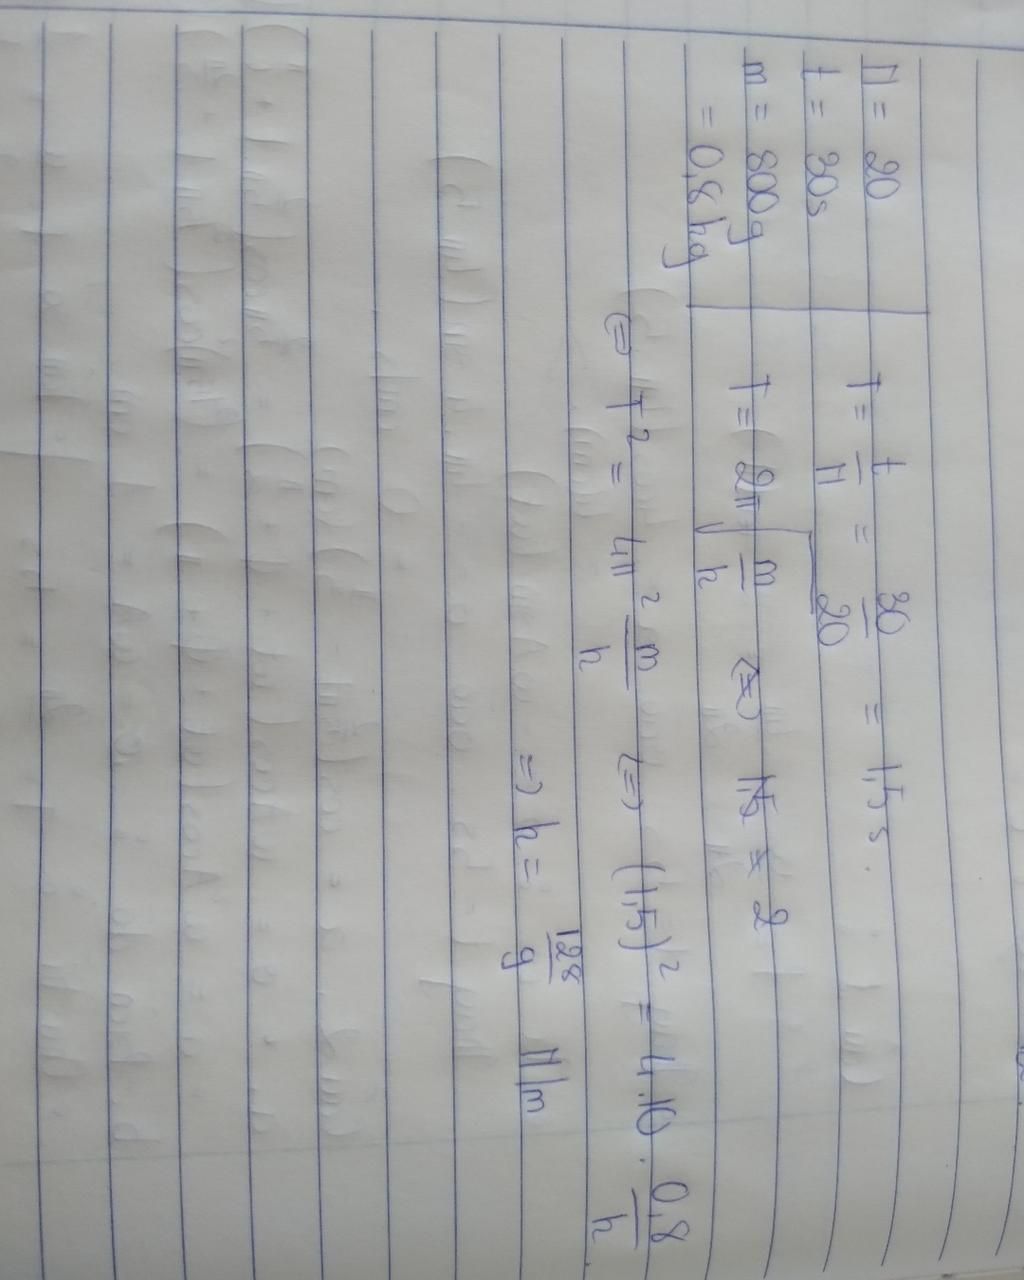 N = 20
t = 30s
m = 800g
= 0,8 kg
T = t/N = 30/20 = 1,5 s.
T = 2π√(m/k) (=) 1,5 = 2
(=) T² = 4π² m/k (=) (1,5)² = 4.10 . 0,8/k
=) k = 128/9 N/m